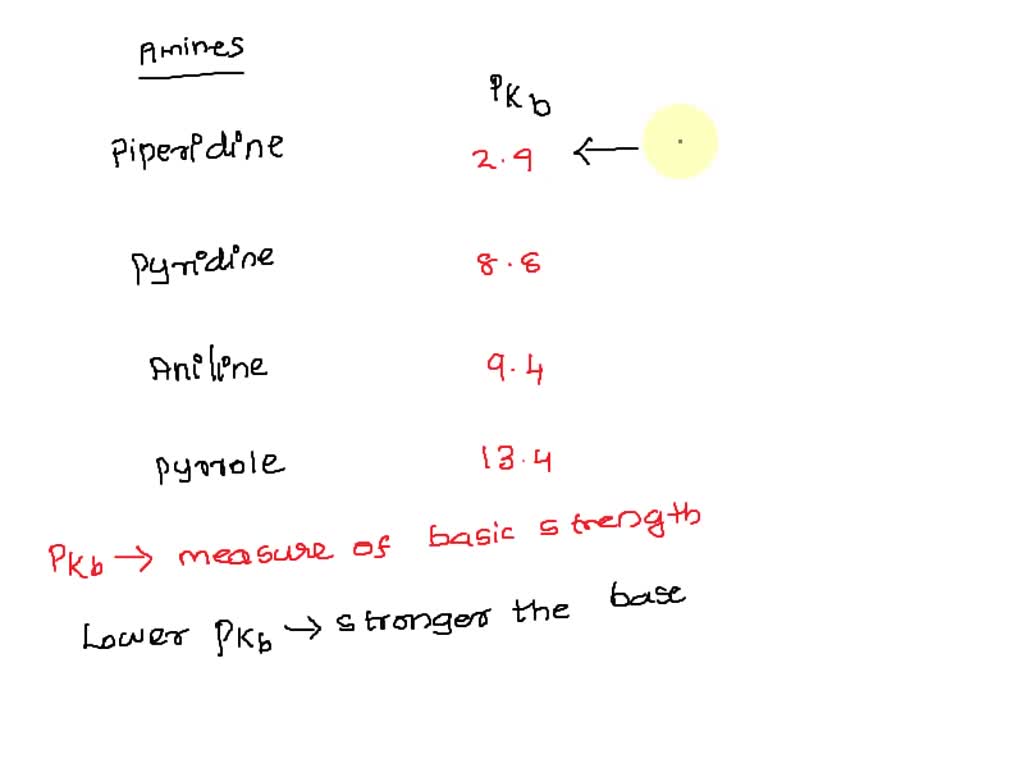 Amines
PKb
Piperidine 2.9
Pyridine 8.8
Aniline 9.4
Pyrrole 13.4
PKb → measure of basic strength
Lower PKb → stronger the base